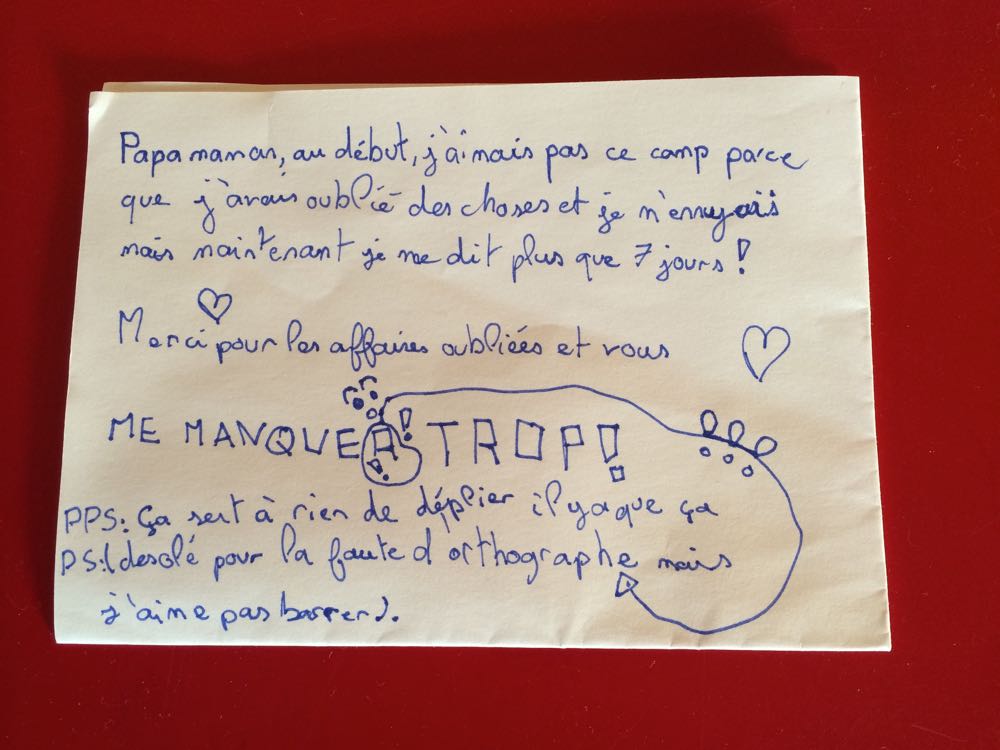 Papa maman, au début, j'aimais pas ce camp parce
que j'avais oublié des choses et je m'ennuyais
mais maintenant je me dit plus que 7 jours !
Merci pour les affaires oubliées et vous
ME MANQUER ! TROP !
PPS : Ça sert à rien de déplier il y a que ça
PS : ( desolé pour la faute d orthographe mais
j'aime pas barrer ).